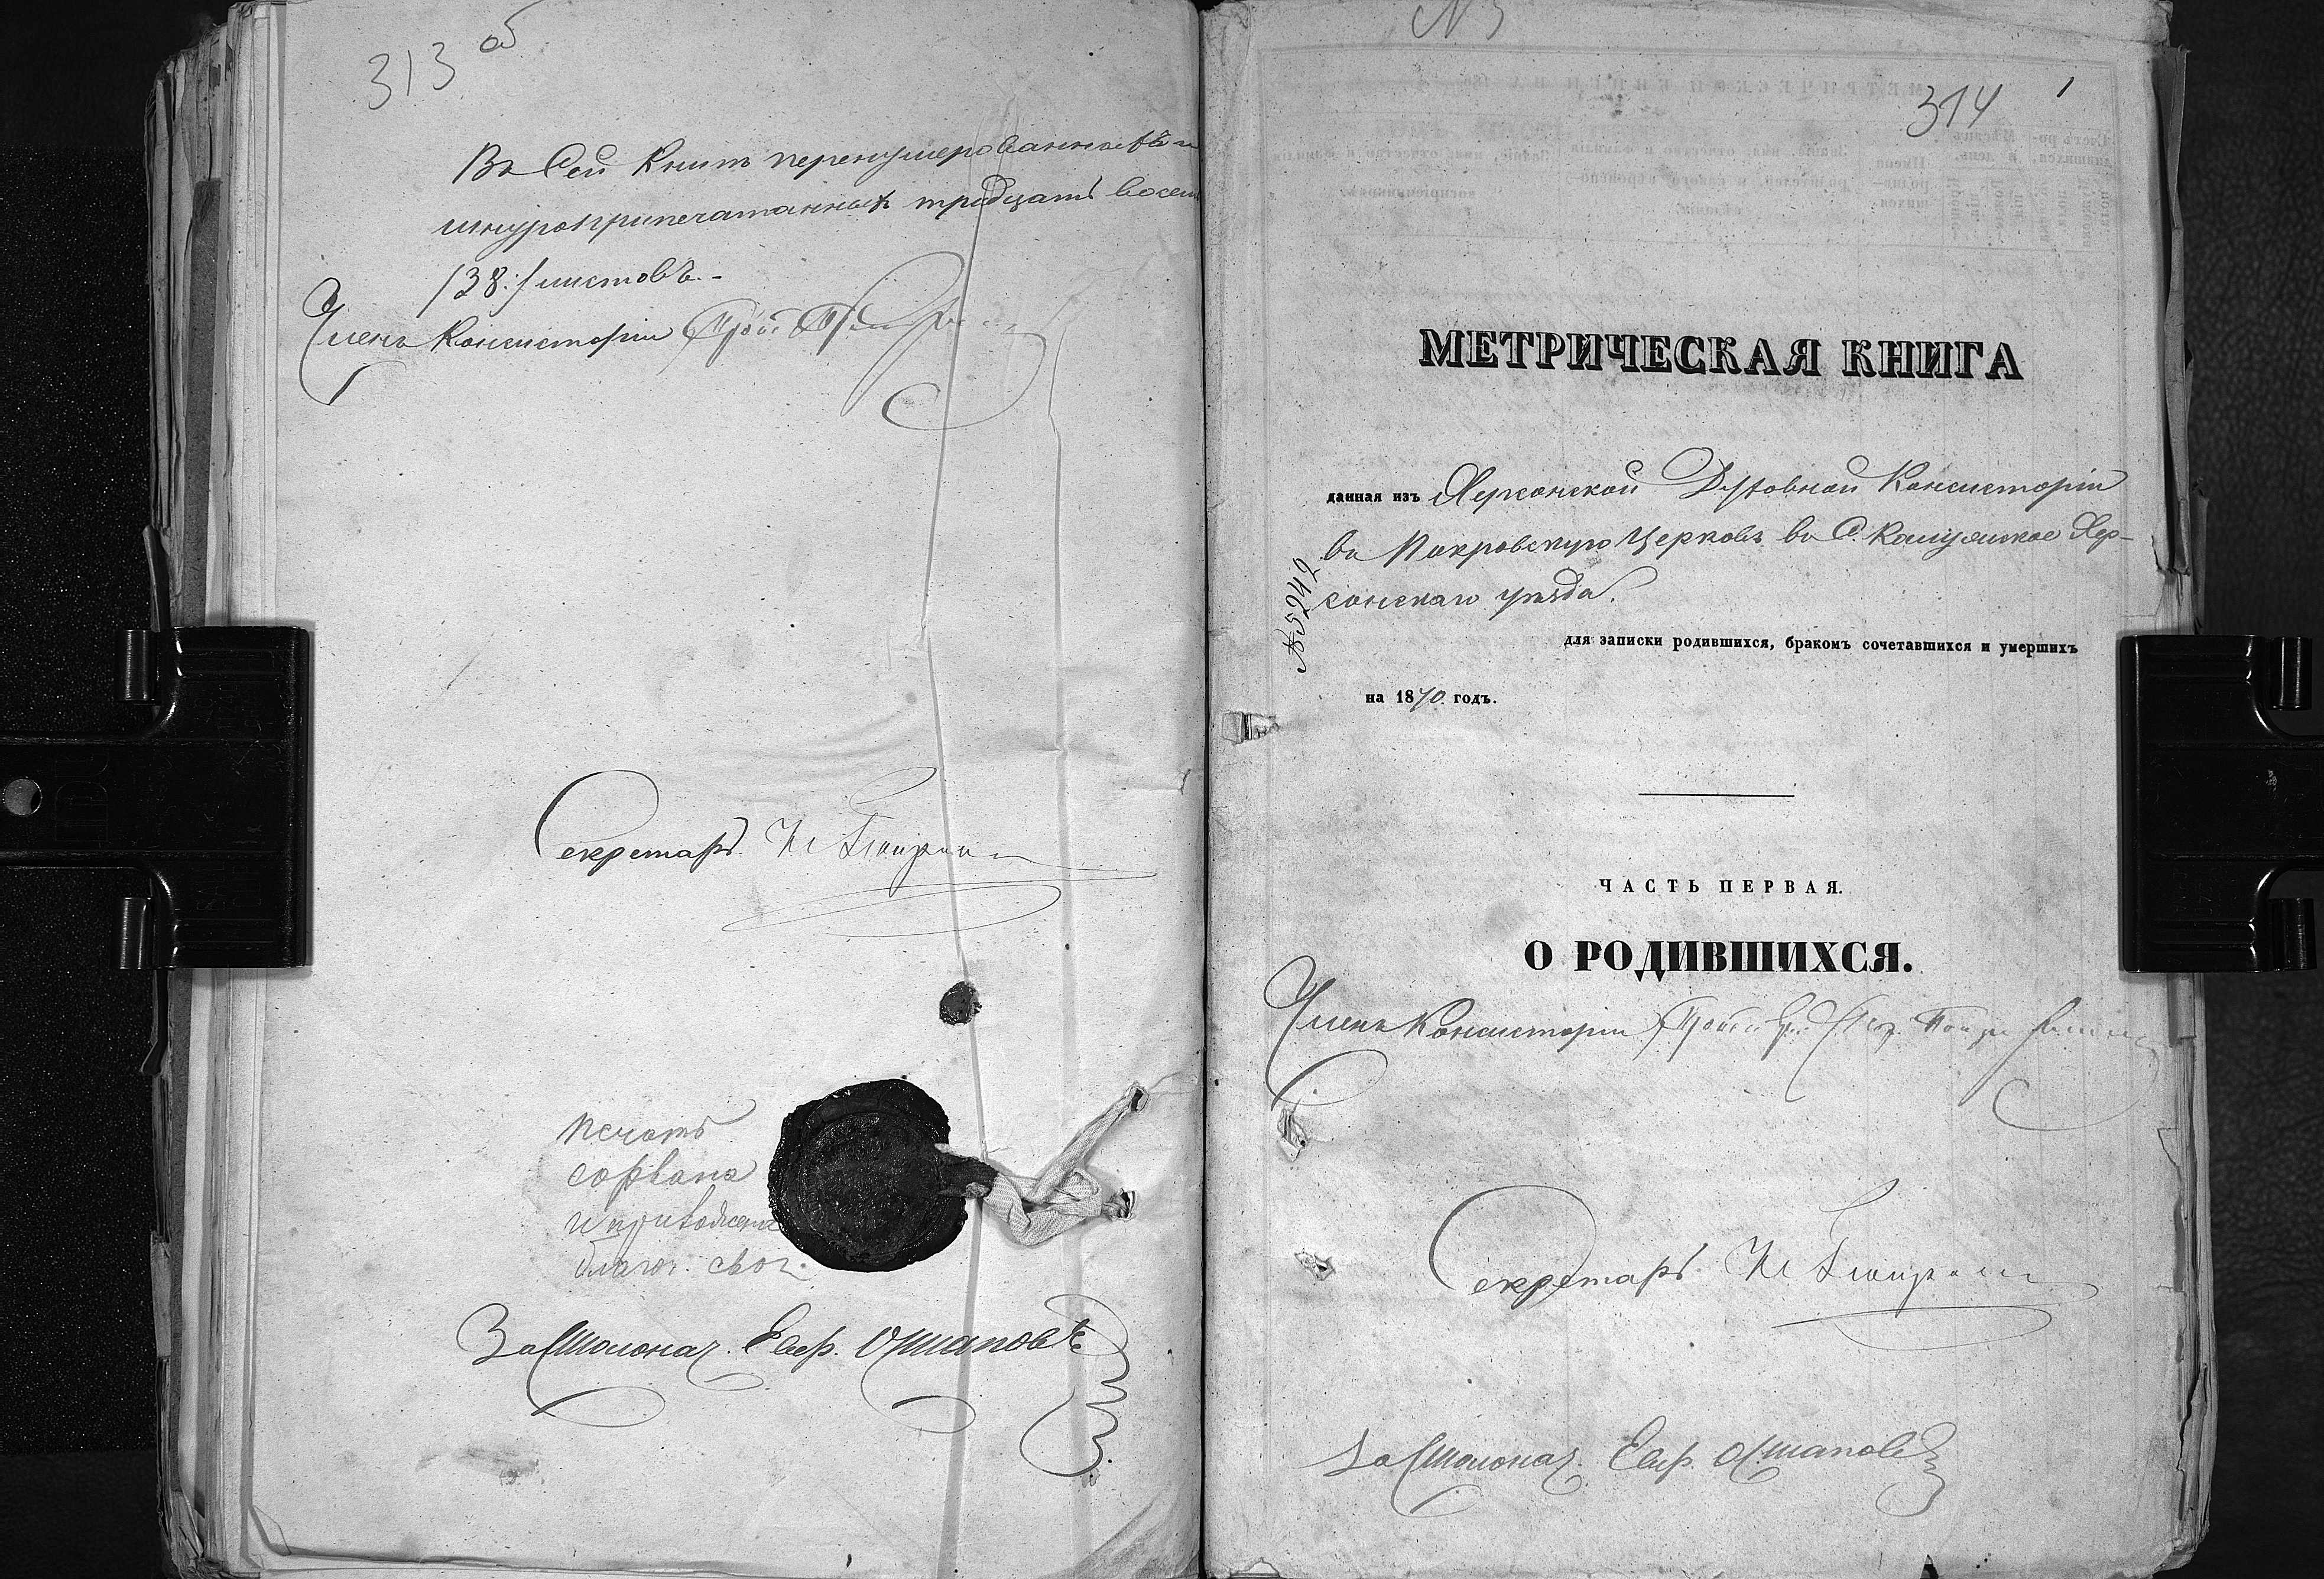 313 об
Въ Сей Книгѣ перенумерованныхъ и
шнуроприпечатанныхъ тридцать восемь
/38:/ листовъ.-
Членъ Консисторіи Прот.
Секретарь
печать
сорвана
и приложена
благоч. свог.
За Столонач. Евф. Ошаповъ
N 5
314
1
МЕТРИЧЕСКАЯ КНИГА
данная изъ Херсонской Духовной Консисторіи
въ Покровскую Церковь въ С. Калужское Хер-
сонскаго уѣзда.
№5242
для записки родившихся, бракомъ сочетавшихся и умершихъ
на 1870 годъ.
ЧАСТЬ ПЕРВАЯ.
О РОДИВШИХСЯ.
Членъ Консисторіи
Секретарь
За Столонач. Евф. Ошаповъ